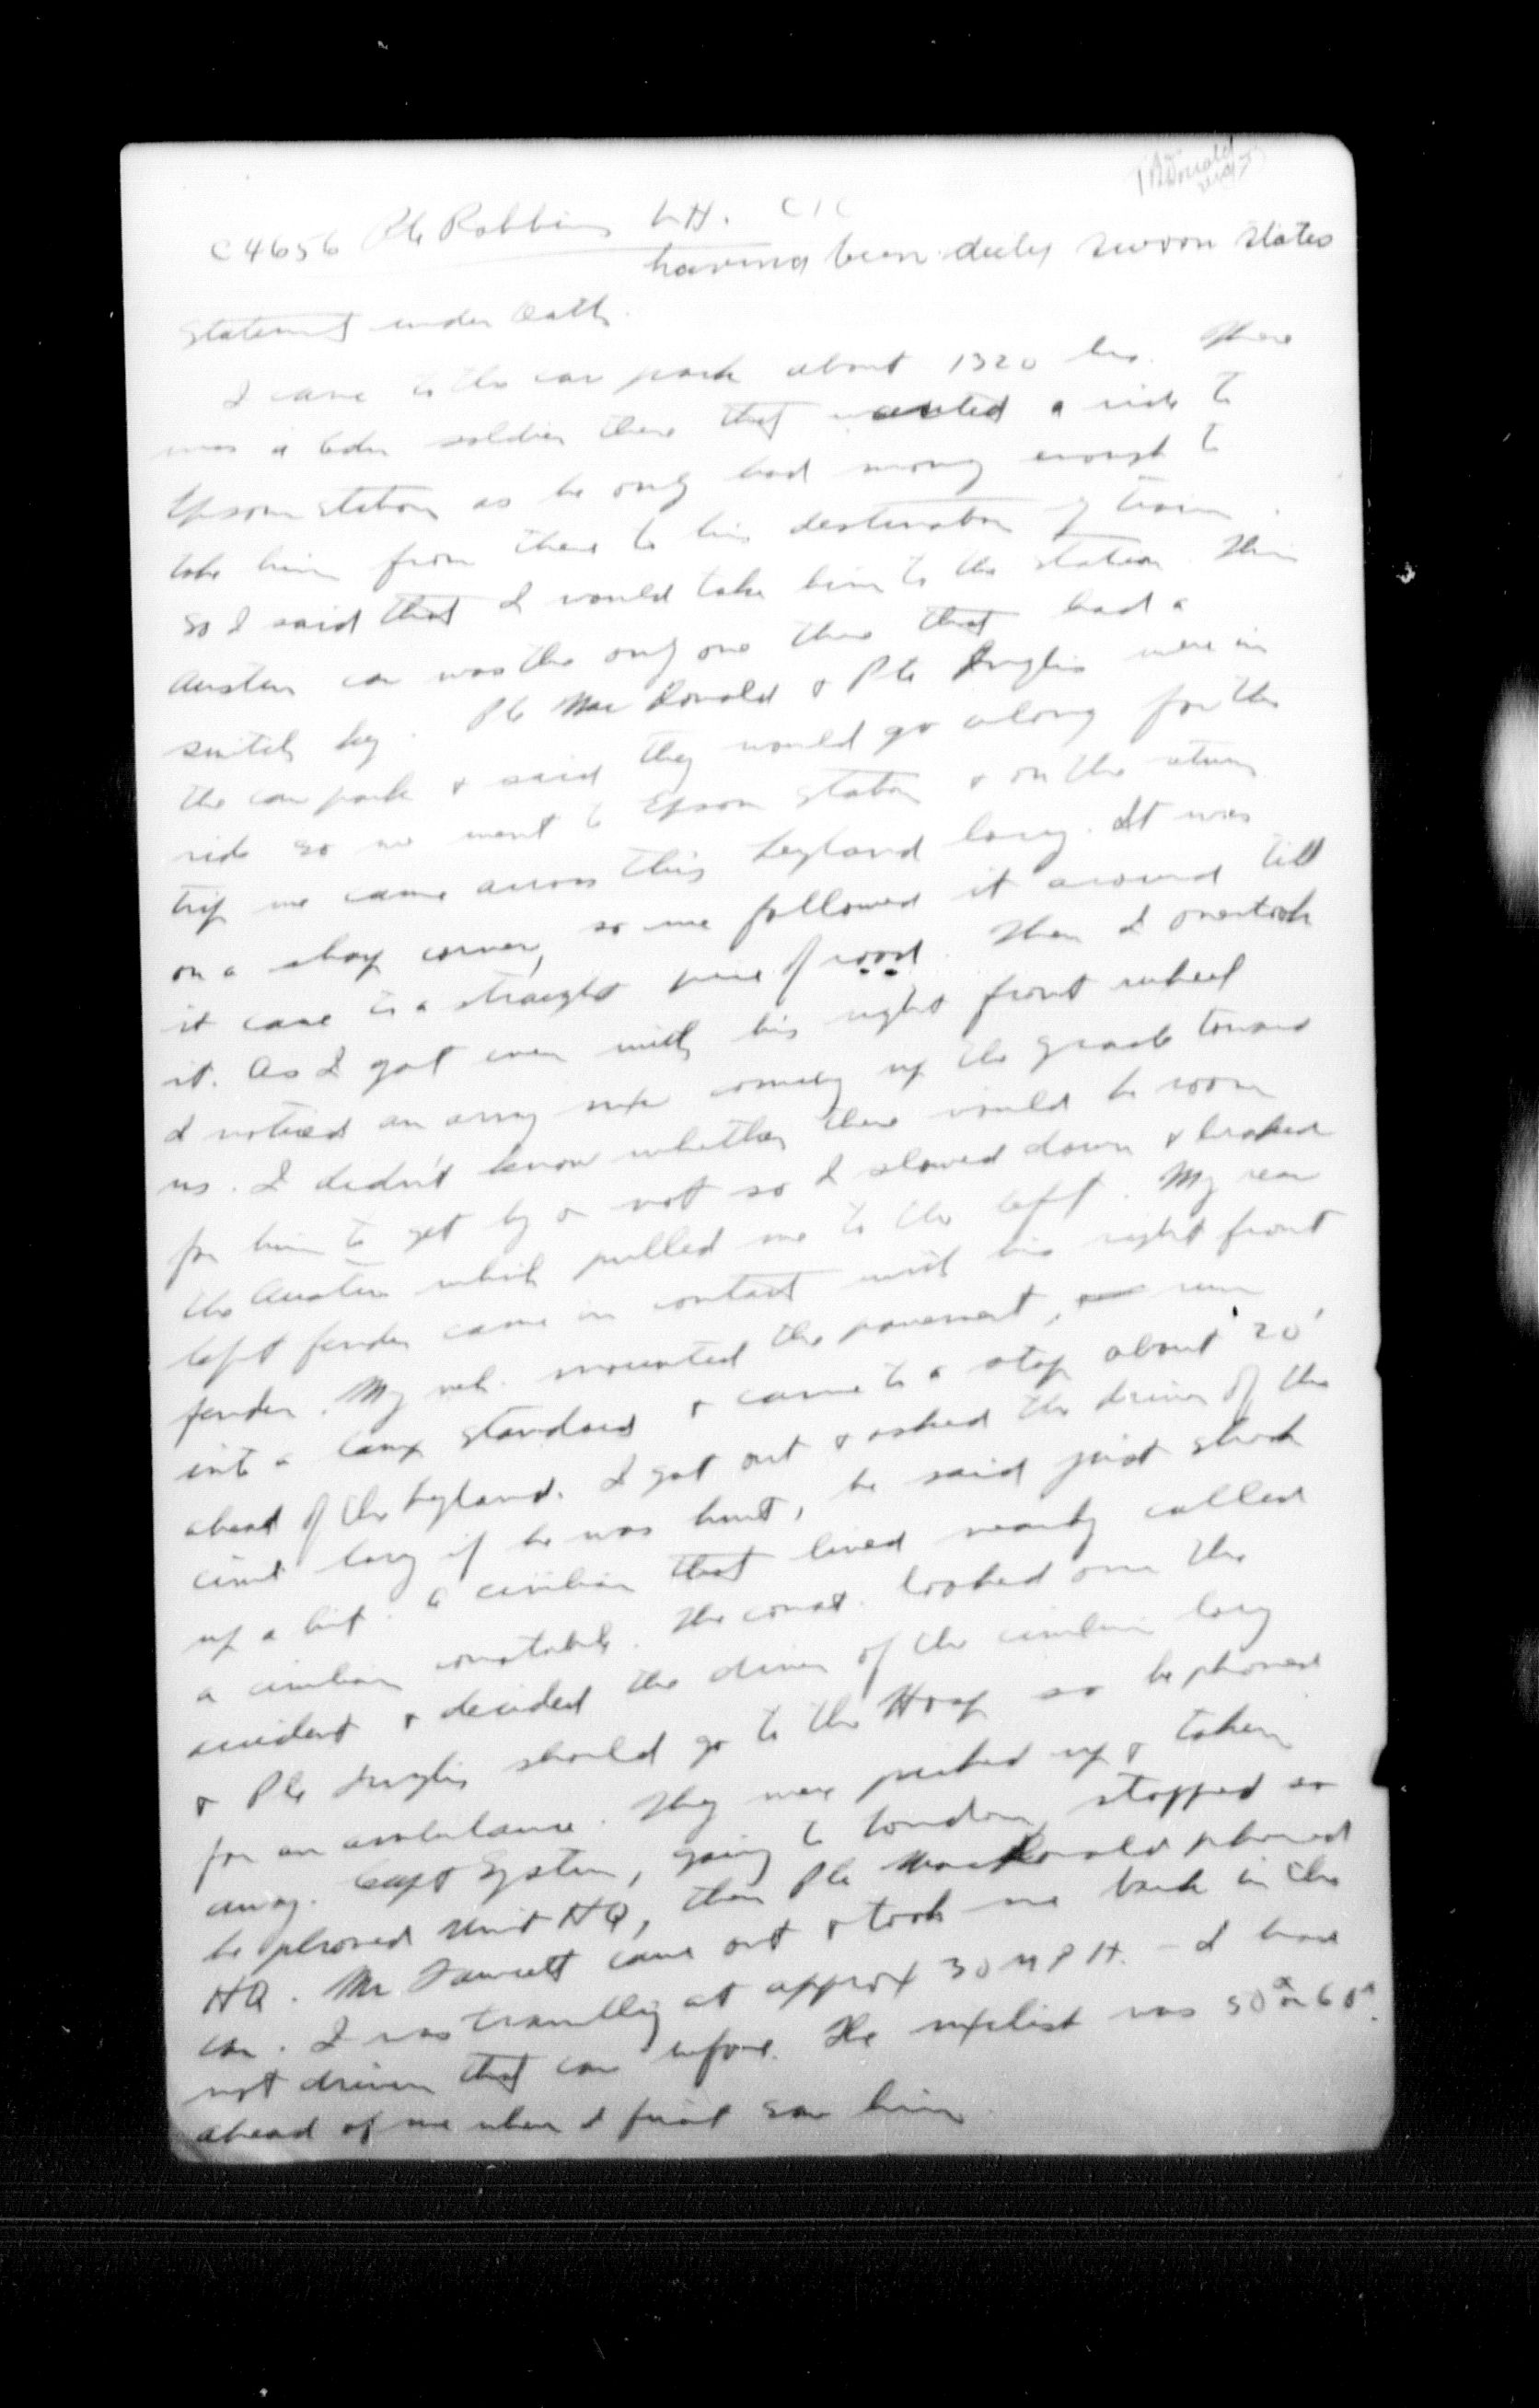 McDonald
C4656 Pte Robbins L.H. CIC
having been duly sworn states
Statement under Oath.
I came to the car park about 1320 hrs. There
was a Cdn soldier there that wanted a ride to
Epsom station as he only had money enough to
take him from there to his destination by train.
So I said that I would take him to the station. This
Austin car was the only one there that had a
switch key. Pte MacDonald & Pte Inglis were in
the car park & said they would go along for the
ride so we went to Epsom Station & on the return
trip we came across this Leyland lorry. It was
on a sharp corner, so we followed it around till
it came to a straight piece of road. Then I overtook
it. As I got even with his right front wheel
I noticed an army m/c coming up the grade toward
us. I didn't know whether there would be room
for him to get by or not so I slowed down & braked
the Austin which pulled me to the left. My rear
left fender came in contact with his right front
fender. My veh. mounted the pavement, run
into a lamp standard & came to a stop about 20'
ahead of the Leyland. I got out & asked the driver of the
civil lorry if he was hurt, he said just shook
up a bit. A civilian that lived nearby called
a civilian constable. The const. looked over the
accident & decided the driver of the civilian lorry
& Pte Inglis should go to the Hosp so he phoned
for an ambulance. They were picked up & taken
away. Capt going to London, stopped so
he phoned Unit HQ, then Pte MacDonald phoned
HQ. Mr Fawcett came out & took me back in the
car. I was travelling at approx 30 M P H. - I have
not driven that car before. The m/clist was 50 or 60
ahead of me when I first saw him.